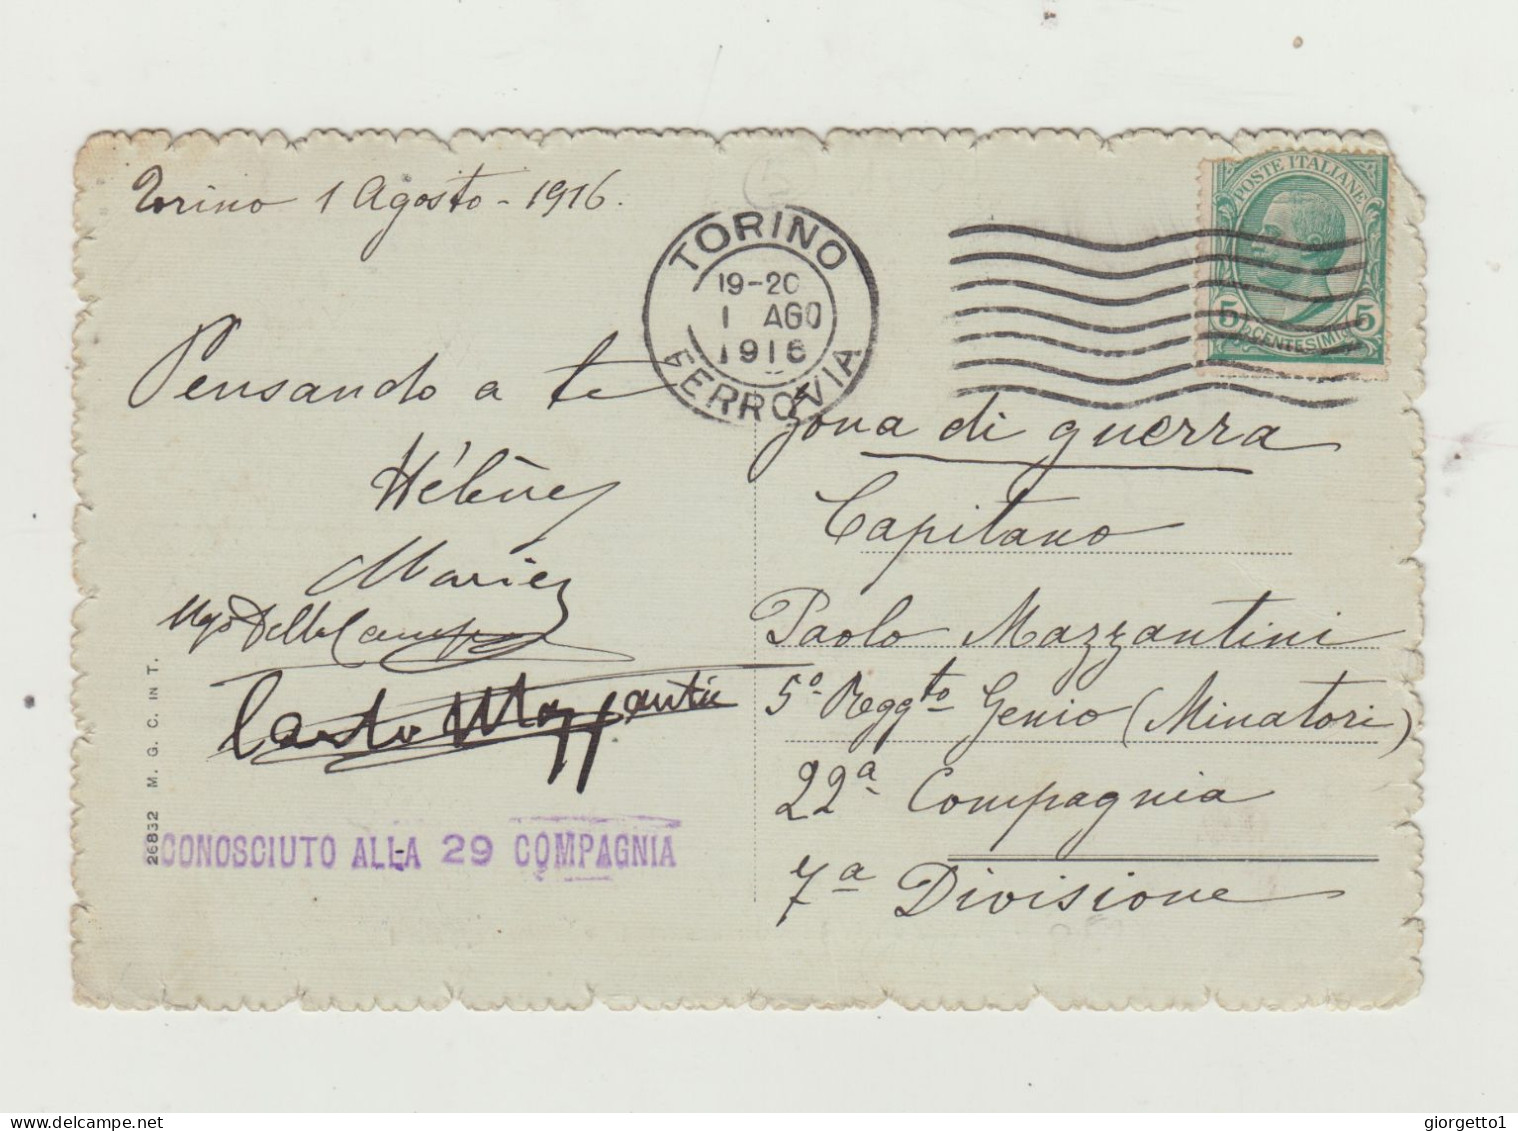 Torino 1 Agosto - 1916.
Pensando a te
Hélène
Maria
Ugo Della Campa
Carlo Mazzantini
CONOSCIUTO ALLA 29 COMPAGNIA
26832 M. G. C. IN T.
TORINO
19-20
1 AGO
1916
FERROVIA
POSTE ITALIANE
5 CENTESIMI 5
Zona di guerra
Capitano
Paolo Mazzantini
5º Reggto Genio (Minatori)
22ª Compagnia
7ª Divisione
delcampe.net
giorgetto1